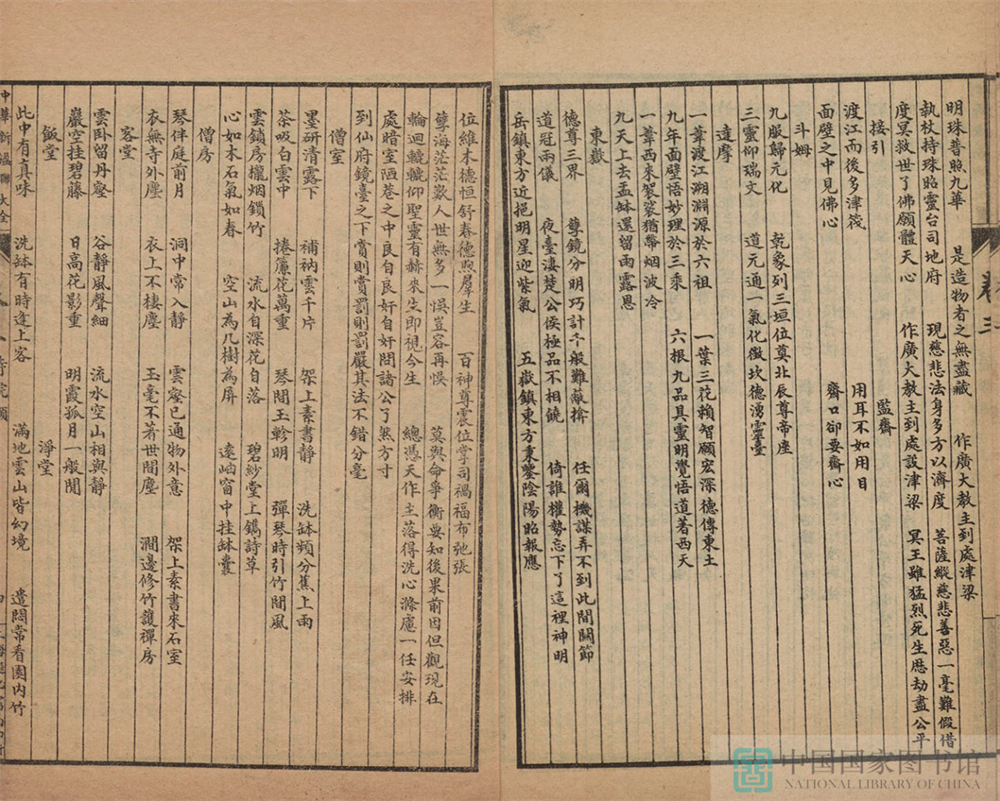 卷三
明珠普照九華　是造物者之無盡藏　作廣大教主到處津梁
執杖持珠昭靈台司地府　現慈悲法身多方以濟度　菩薩縱慈悲善惡一毫難假借
度冥救世了佛願體天心　作廣大教主到處設津梁　冥王雖猛烈死生歷劫盡公平
接引　監齋
渡江而後多津筏　用耳不如用目
面壁之中見佛心　齋口卻要齋心
斗姆
九服歸元化　乾象列三垣位奠北辰尊帝座
三靈仰瑞文　道元通一氣化徵坎德湧靈臺
達摩
一葦渡江溯淵源於六祖　一葉三花賴智願宏深德傳東土
九年面壁悟妙理於三乘　六根九品具靈明覺悟道著西天
一葦西來袈裟猶帶烟波冷
九天上去盂缽還留雨露恩
東嶽
德尊三界　孽鏡分明巧計千般難蔽揜　任爾機謀弄不到此間關節
道冠兩儀　夜臺淒楚公侯極品不相饒　倚誰權勢忘下了這裡神明
岳鎮東方近挹明星迎紫氣　五嶽鎮東方秉靈陰陽昭報應
位維木德恒舒春德煦羣生　百神尊震位掌司禍福布弛張
孽海茫茫歎人世無多一悞豈容再悞　莫與命爭衡要知後果前因但觀現在
輪迴轆轆仰聖靈有赫來生即視今生　總憑天作主落得洗心滌慮一任安排
處暗室陋巷之中良自良奸自奸問諸公了然方寸
到仙府鏡臺之下賞則賞罰則罰嚴其法不錯分毫
僧室
墨研清露下　補衲雲千片　架上素書靜　洗缽頻分蕉上雨
茶吸白雲中　捲簾花萬重　琴間玉軫明　彈琴時引竹間風
雲鎖房櫳烟鎖竹　流水自深花自落　碧紗堂上鐫詩草
心如木石氣如春　空山為几樹為屏　遠岫窗中挂缽囊
僧房
琴伴庭前月　洞中常入靜　雲壑已通物外意　架上素書來石室
衣無寺外塵　衣上不棲塵　玉毫不著世間塵　澗邊修竹護禪房
客堂
雲臥留丹壑　谷靜風聲細　流水空山相與靜
巖空挂碧藤　日高花影重　明霞孤月一般閒
飯堂　淨堂
此中有真味　洗缽有時逢上客　滿地雲山皆幻境　遣悶常看園內竹
中華新編聯大全
中国国家图书馆
NATIONAL LIBRARY OF CHINA